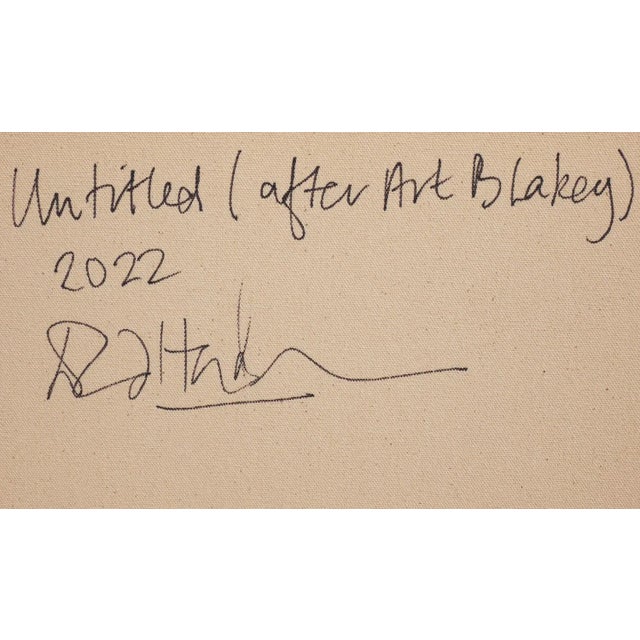 Untitled (after Art Blakey)
2022